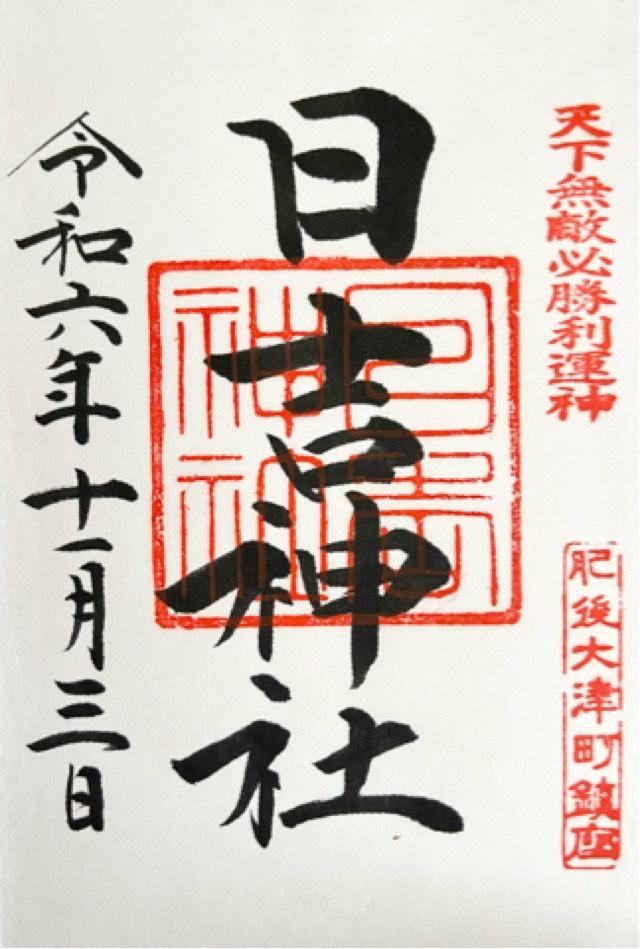 天下無敵必勝利運神
肥後大津町鎮座
日吉神社
日吉神社
令和六年十一月三日